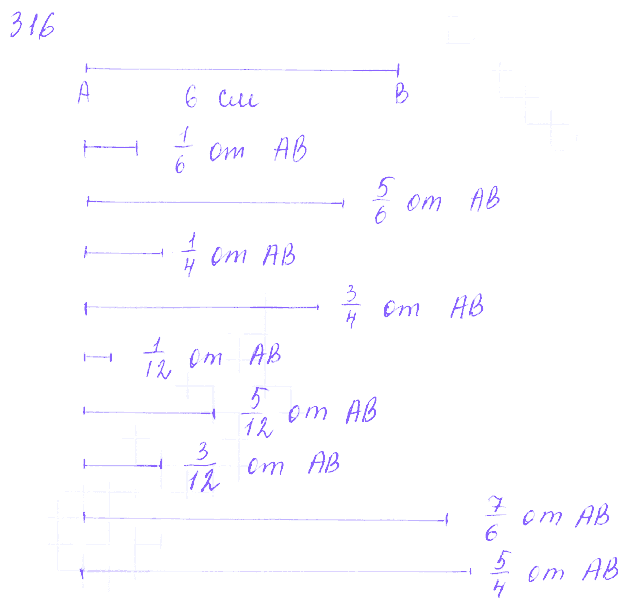 316
A 6 см B
1/6 от AB
5/6 от AB
1/4 от AB
3/4 от AB
1/12 от AB
5/12 от AB
3/12 от AB
7/6 от AB
5/4 от AB